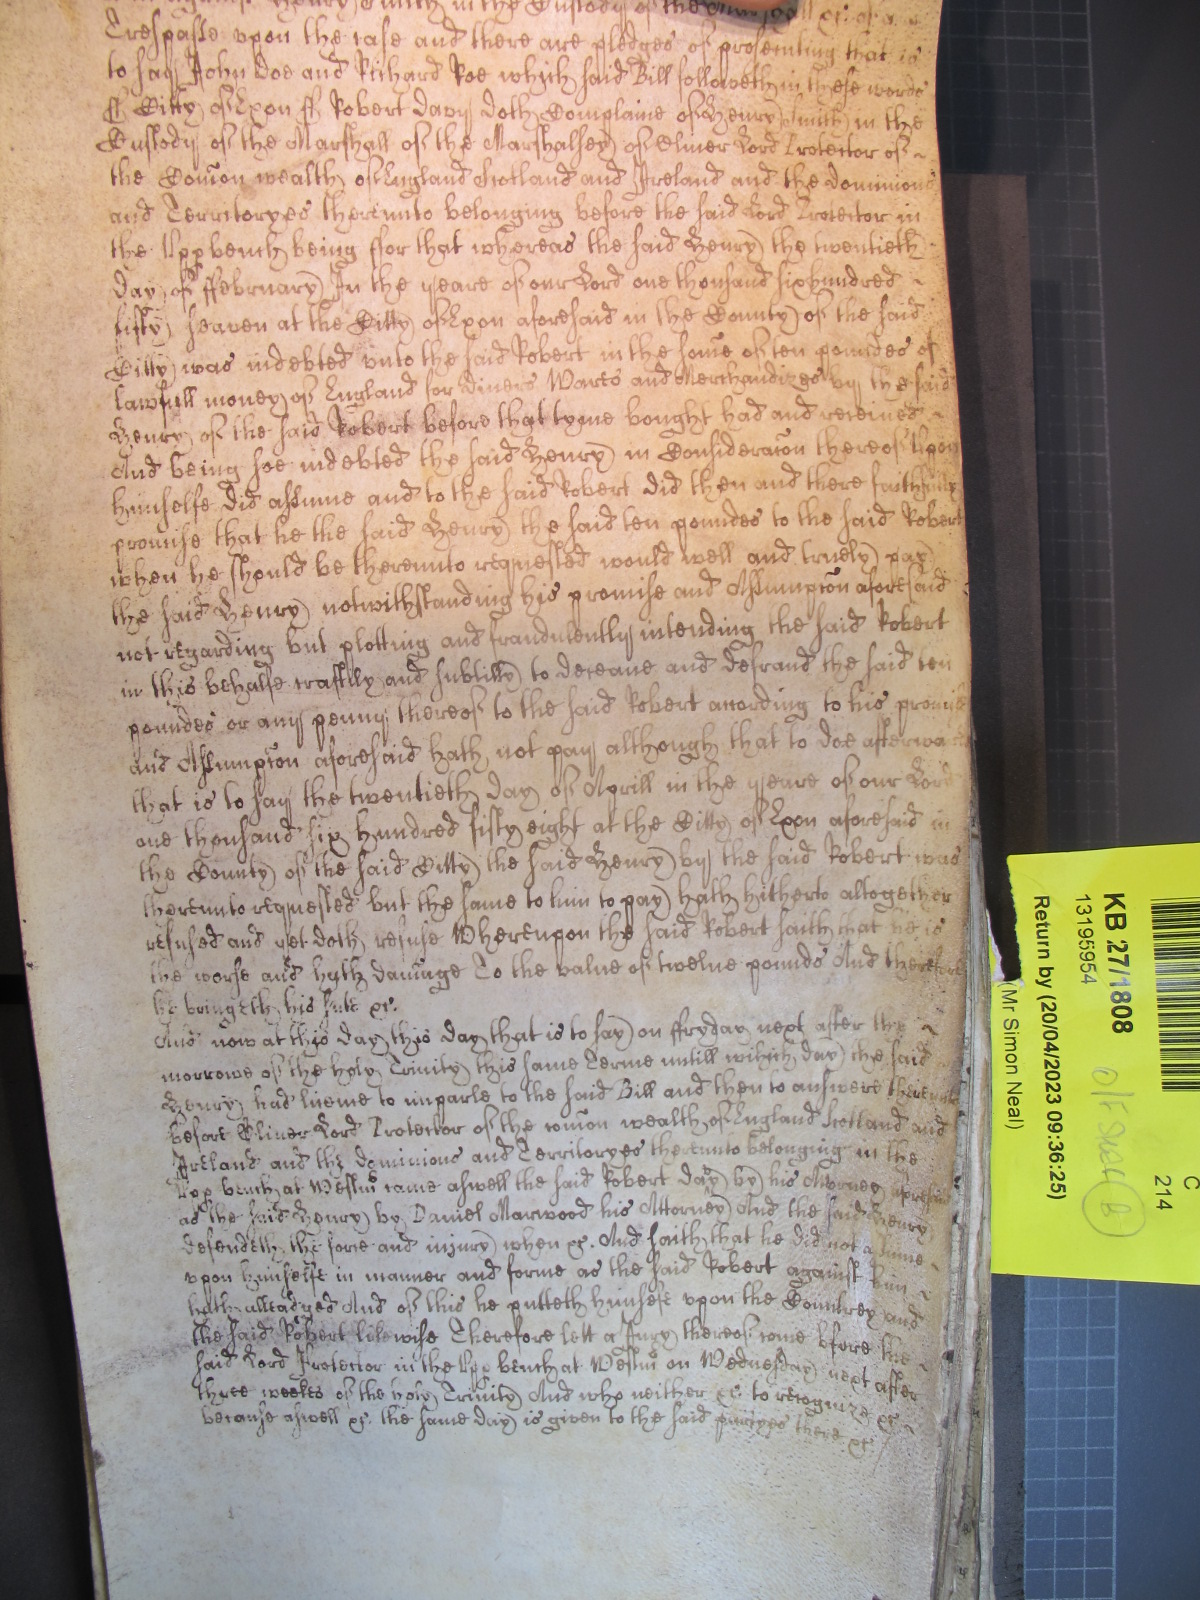 against Henry Smith in the Custody of the Marshall &c. of a
Trespasse vpon the case and there are pledges of prosecuting that is
to say John Doe and Richard Roe which said Bill followeth in these words
ss Citty of Exon ss Robert Davy doth Complaine of Henry Smith in the
Custody of the Marshall of the Marshalsey of Oliver Lord Protector of
the Com̄on wealth of England Scotland and Ireland and the dominions
and Territoryes thereunto belonging before the said Lord Protector in
the Vpp bench being ffor that whereas the said Henry the twentieth
day of ffebruary In the yeare of our Lord one thousand six hundred
fifty seaven at the Citty of Exon aforesaid in the County of the said
Citty was indebted vnto the said Robert in the som̄e of ten poundes of
lawfull money of England for divers Wares and Merchandizes by the said
Henry of the said Robert before that tyme bought had and received
And being soe indebted the said Henry in Considerac̄on thereof Vpon
himselfe did assume and to the said Robert did then and there faithfully
promise that he the said Henry the said ten poundes to the said Robert
when he should be thereunto requested would well and truely pay
the said Henry notwithstanding his promise and Assumpc̄on aforesaid
not regarding but plotting and fraudulently intending the said Robert
in this behalfe craftily and subtilly to deceave and defraud the said ten
poundes or any penny thereof to the said Robert according to his promise
and Assumpc̄on aforesaid hath not pay although that to doe afterwards
that is to say the twentieth day of Aprill in the yeare of our Lord
one thousand six hundred fifty eight at the Citty of Exon aforesaid in
the County of the said Citty the said Henry by the said Robert was
thereunto requested but the same to him to pay hath hitherto altogether
refused and yet doth refuse Whereupon the said Robert saith that he is
the worse and hath damage To the value of twelve pounds And therefore
he bringeth his sute &c.
And now at this day this day that is to say on ffryday next after the
morrowe of the holy Trinity this same Terme untill which day the said
Henry had licence to imparle to the said Bill and then to answere thereunto
before Oliver Lord Protector of the com̄on wealth of England Scotland and
Ireland and the dominions and Territoryes thereunto belonging in the
Vpp bench at Westm̄ came aswell the said Robert davy by his Attorney aforesaid
as the said Henry by Daniel Marwood his Attorney And the said Henry
defendeth the force and injury when &c. And saith that he did not assume
vpon himselfe in manner and forme as the said Robert against him
hath alleadged And of this he putteth himselfe vpon the Countrey and
the said Robert likewise Therefore lett a Jury thereof come before the
said Lord Protector in the Vpp bench at Westm̄ on Wednesday next after
three weekes of the holy Trinity And who neither &c. to recognize &c.
because aswell &c. the same day is given to the said partyes there &c.
C
214
KB 27/1808
13195954
O/F Shelf B
Return by (20/04/2023 09:36:25)
(Mr Simon Neal)